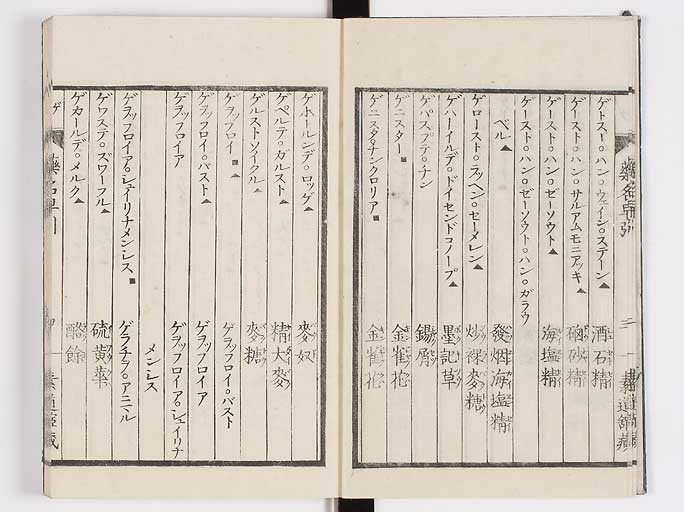 藥名早引
ゲトスト○ハン○ウェイン○ステーン▲ 酒石精
ゲースト○ハン○サルアムモニアッキ▲ 硇砂精
ゲースト○ハン○ゼーソウト▲ 海塩精
ゲースト○ハン○ゼーソウト○ハン○ガラウ
ベル▲ 發烟海塩精
ゲロースト○ラッヘン○セーメレン▲ 炒裸麥糖
ゲハーイルデ○ドイセンドコノープ▲ 墨記草
ゲパスプテ○チン 錫屑
ゲニスター 金雀花
ゲニスタ○チンクロリア 金雀花
ゲホールンデ○ロッゲ▲ 麥奴
ゲペルデ○ガルスト▲ 精大麥
ゲルストソイクル▲ 麥糖
ゲヲッフロイ▲ ゲヲッフロイ○バスト
ゲヲッフロイ○バスト▲ ゲヲッフロイア
ゲヲッフロイア ゲヲッフロイア○シュイリナ
メンレス
ゲヲッフロイア○シュイリナメンレス ゲラチナ○アニマル
ゲワステ○ズワーフル▲ 硫黄華
ゲカールデ○メルク▲ 酪餘
ゲ 藥名早引